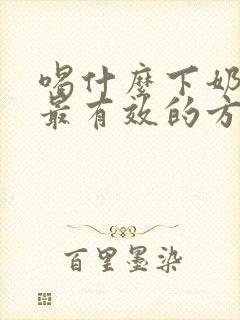 喝什麼下奶
最有效的方
百里墨染